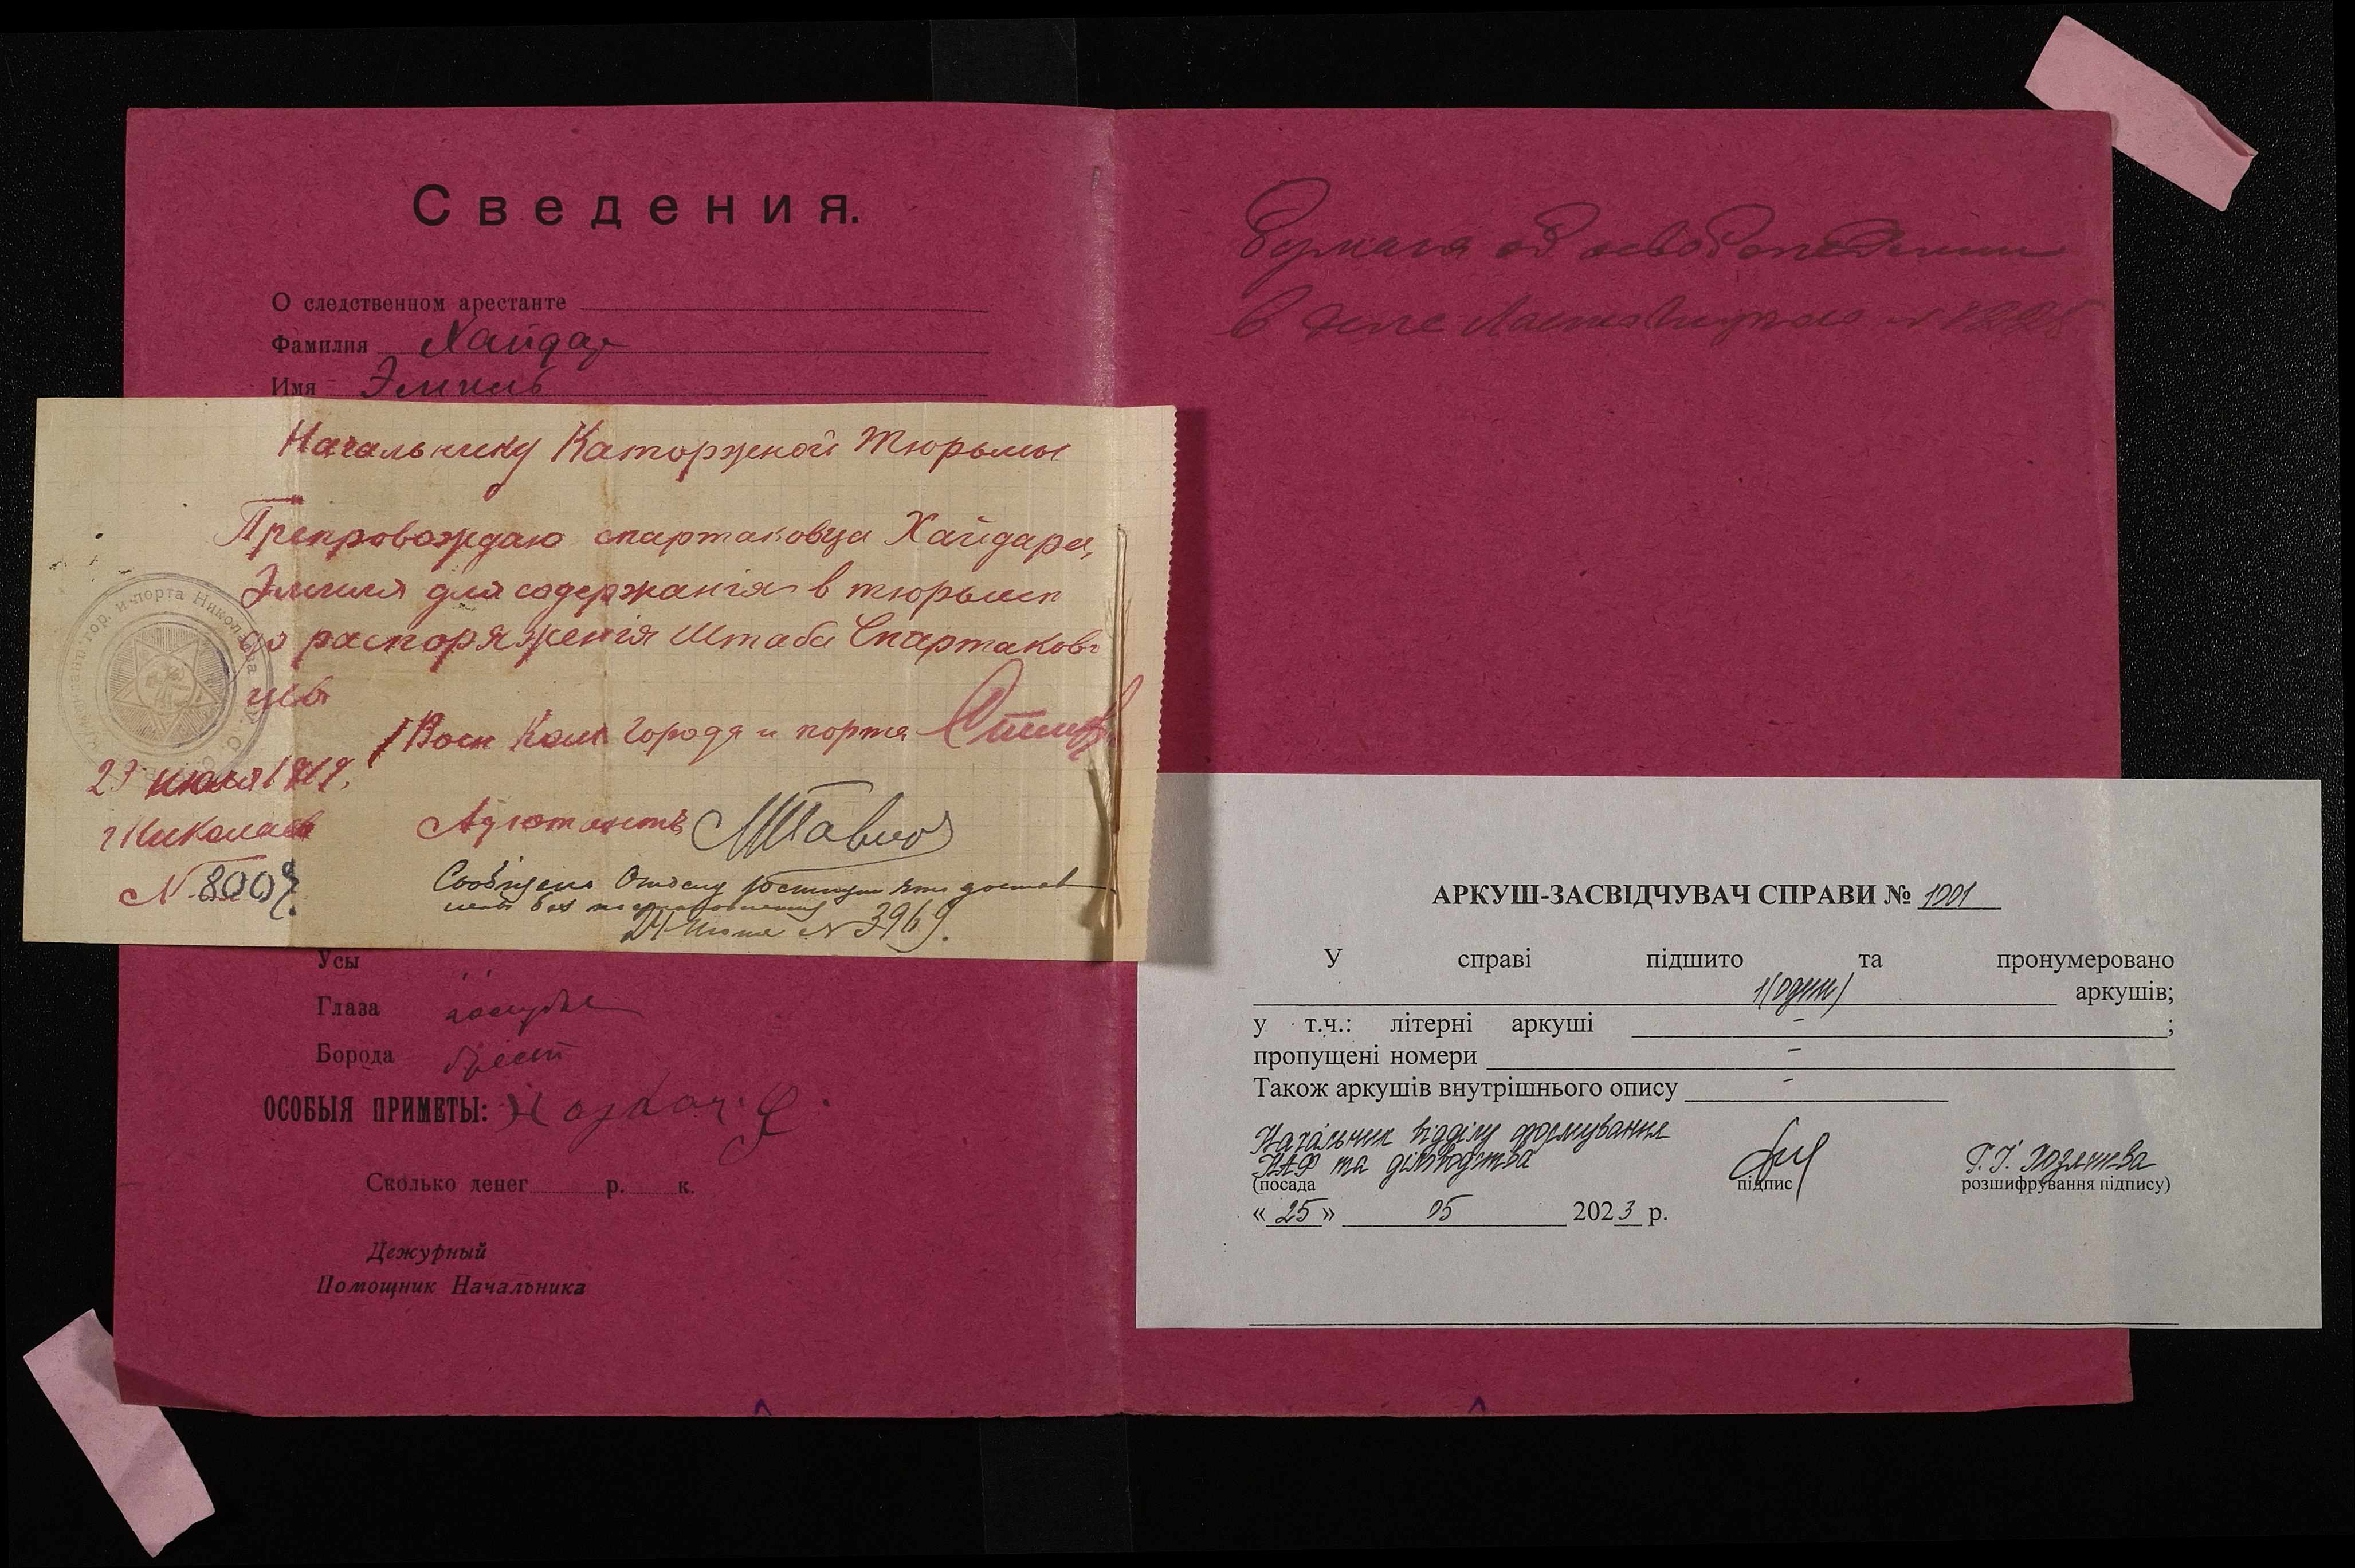 Сведения.
О следственном арестанте
Фамилия Хайдар
Имя Эмиль
Начальнику Каторжной Тюрьмы
Препровождаю спартаковца Хайдара,
Эмиля для содержанія в тюрьмѣ
до распоряженія Штаба Спартаков-
цев
Воен Ком Города и порта
23 июля 1919.
Адютантъ
г Николаев
№ 8009
Сообщено
24 № 3969.
гор. и порта Никола
Усы
Глаза голубые
Борода бреет
ОСОБЫЯ ПРИМЕТЫ:
Сколько денег р. к.
Дежурный
Помощник Начальника
Бумага об освобождении
в деле № 1225
АРКУШ-ЗАСВІДЧУВАЧ СПРАВИ № 1001
У справі підшито та пронумеровано
1(один) аркушів;
у т.ч.: літерні аркуші - ;
пропущені номери -
Також аркушів внутрішнього опису -
Начальник відділу формування
НАФ та діловодства
(посада підпис розшифрування підпису)
« 25 » 05 2023 р.